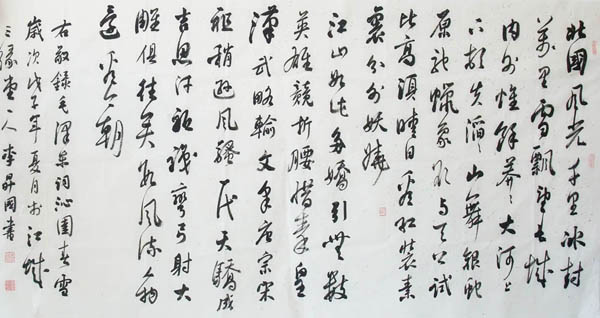 北國風光千里冰封
萬里雪飄望長城
内外惟餘莽莽大河上
下頓失滔滔山舞銀蛇
原馳蠟象欲與天公試
比高須晴日看紅裝素
裹分外妖嬈
江山如此多嬌引無數
英雄競折腰惜秦皇
漢武略輸文采唐宗宋
祖稍遜風騷一代天驕成
吉思汗祇識彎弓射大
雕俱往矣數風流人物
還看今朝
右敬錄毛澤東詞沁園春雪
歲次戊子年夏月於江城
三緣堂主人李昇國書